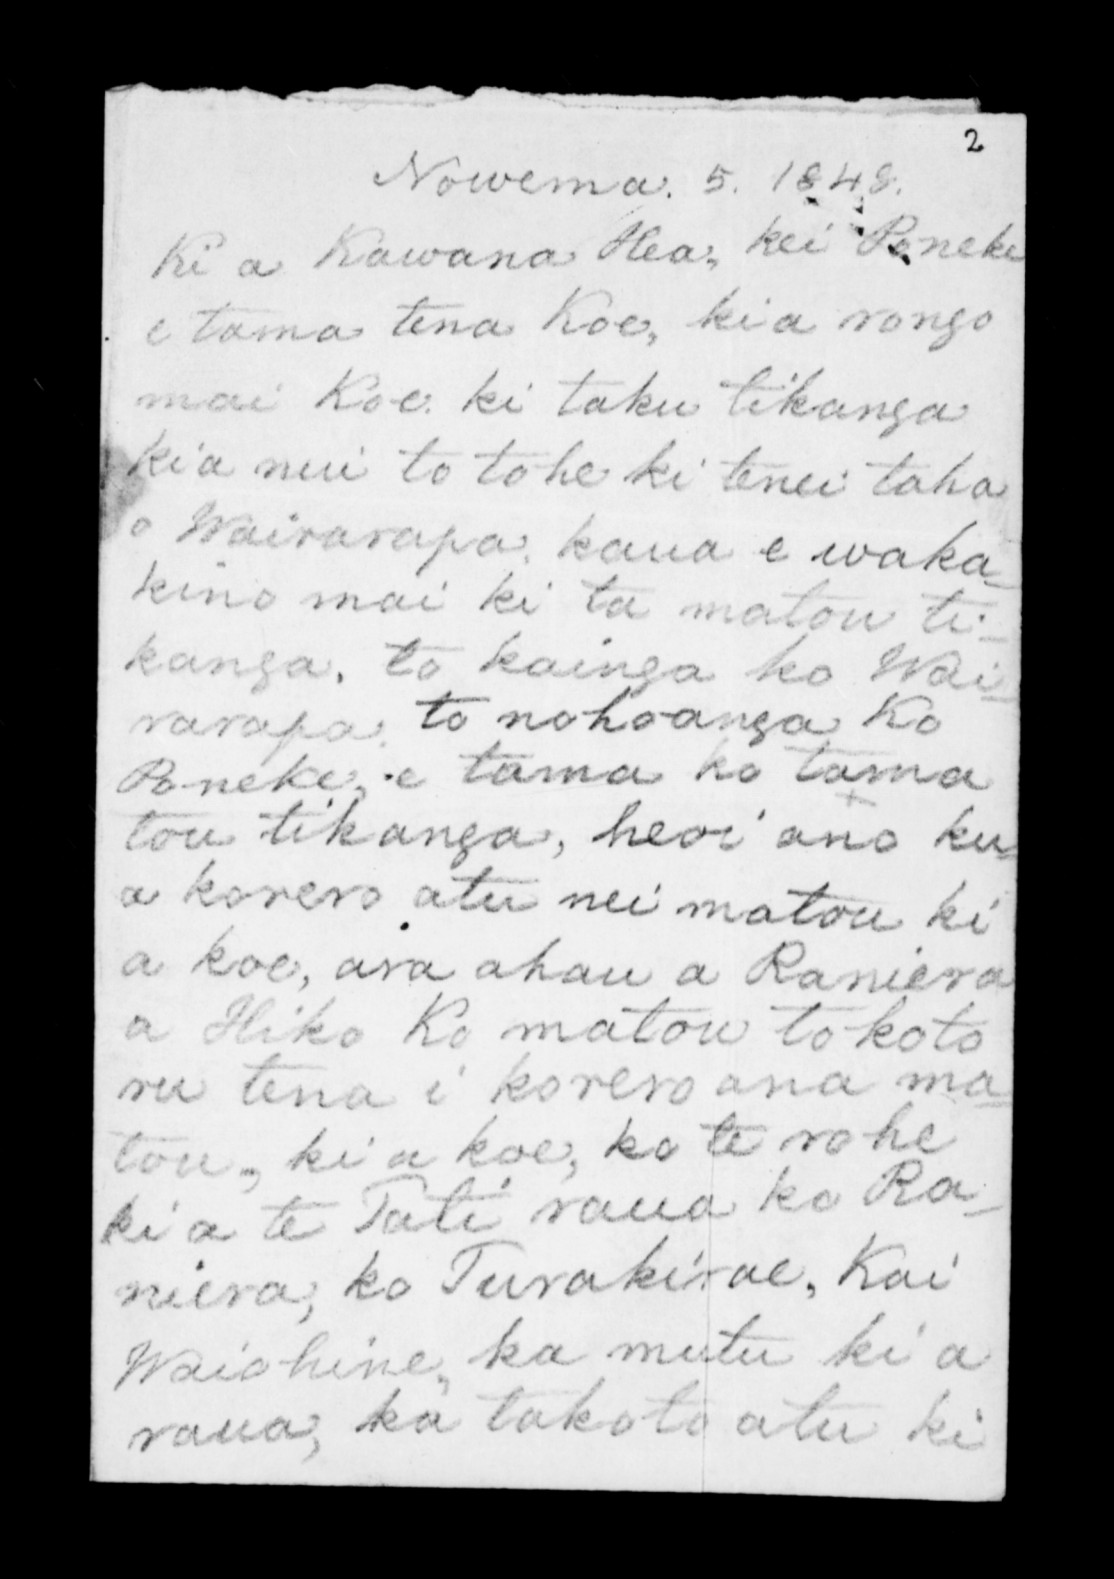 2
Nowema. 5. 1848.
Ki a Kawana Hea, kei Poneke
e tama tena Koe, kia rongo
mai Koe. ki taku tikanga
kia nui to tohe ki tenei taha
o Wairarapa. kaua e waka-
kino mai ki ta matou ti-
kanga. to kainga ko Wai-
rarapa. to nohoanga Ko
Poneke, e tama ko tama
tou tikanga, heoi ano ku-
a korero atu nei matou ki
a koe, ara ahau a Raniera
a Hiko Ko matou tokoto
ru tena i korero ana ma-
tou, ki a koe, ko te rohe
ki a te Tati raua ko Ra-
niera, ko Turakirae, Kai
Waiohine, ka mutu ki a
raua, ka takoto atu ki